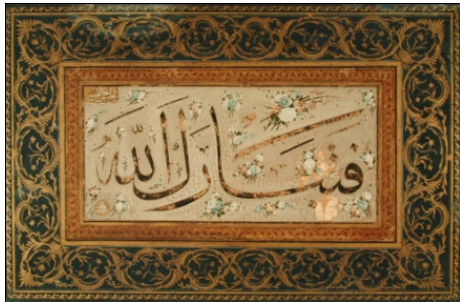 فتبارك الله